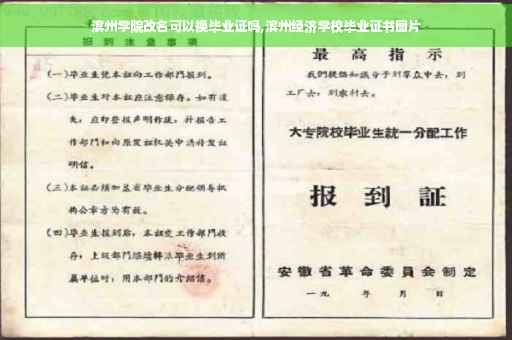 滨州学院改名可以换毕业证吗,滨州经济学校毕业证书图片
报到注意事项
(一)毕业生凭本证向工作部门报到。
(二)毕业生对本证应注意保存。如有遗
失,应即登报声明作废,并报告工
作部门和向原发证机关申请补发证
明信。
(三)本证必须加盖省毕业生分配领导机
构公章方为有效。
(四)毕业生报到后,本证交工作部门收
存,上级部门继续转派毕业生到所
属单位时,用本部门的介绍信。
最高指示
我们提倡知识分子到群众中去,到
工厂去,到农村去。
大专院校毕业生统一分配工作
报到証
安徽省革命委員会制定
一九 年 月 日